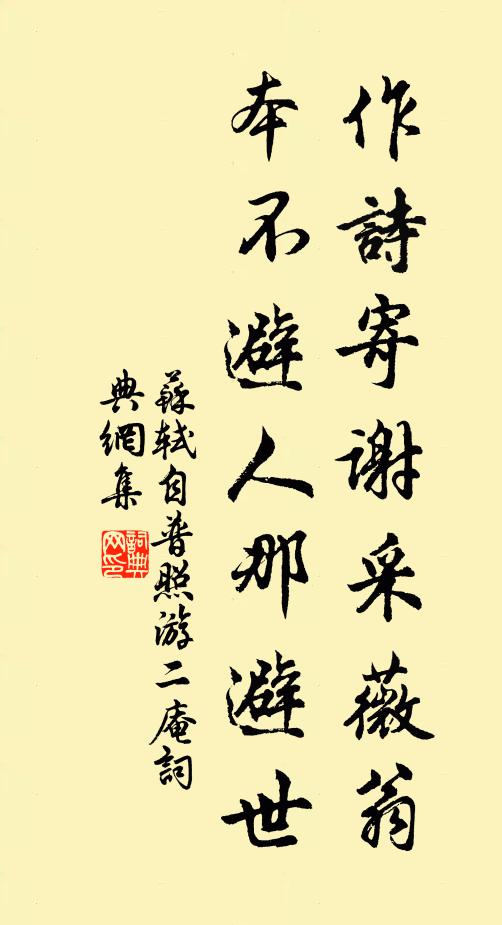 作詩寄謝采薇翁
本不避人那避世
蘇軾自普照游二庵詞
典網集
詞典
网印